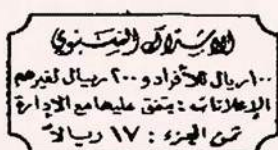 الاشتراك السنوي
١٠٠ ريال للأفراد و ٢٠٠ ريال لغيرهم
الإعلانات : يتفق عليها مع الإدارة
ثمن الجزء : ١٧ ريالاً